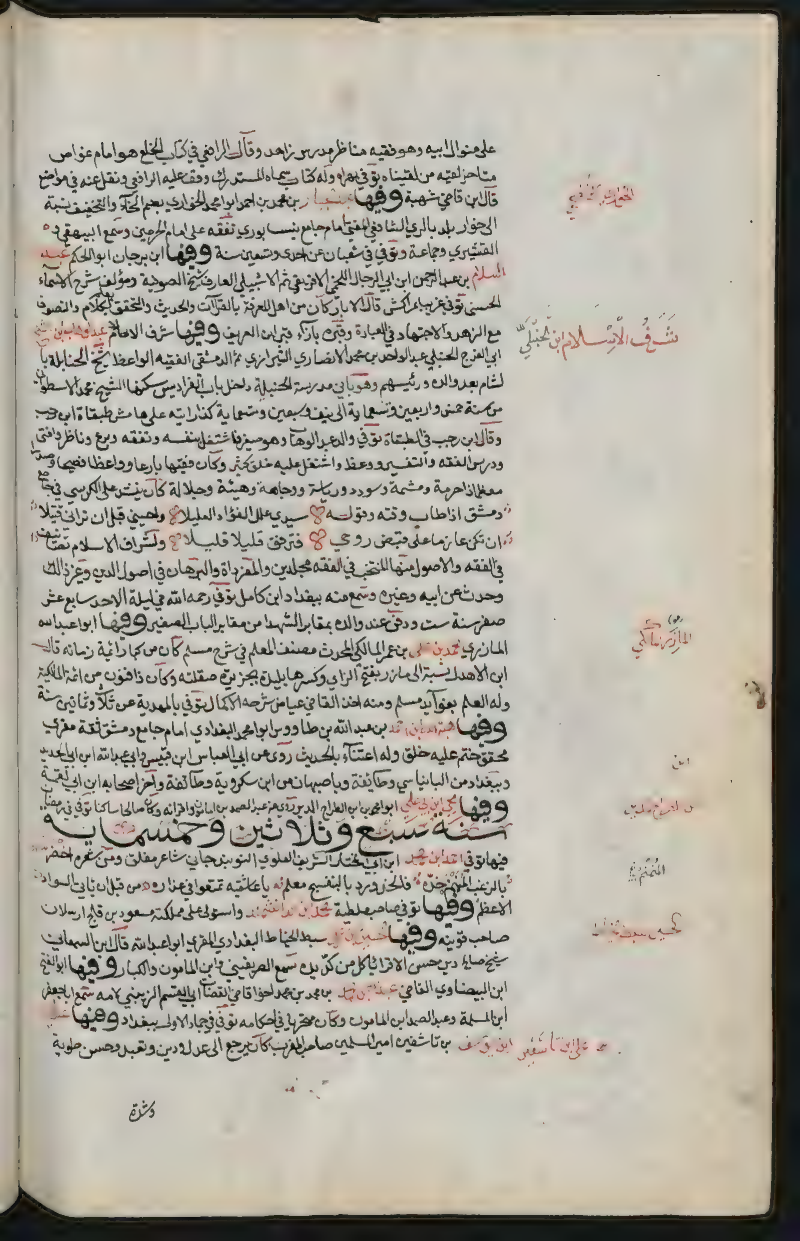 على منوال ابيه وهو فقيه مناظر مدرس زاهد وقال الرافعي في كتاب الخلع هو امام غواص
متاخر لقيه من لقيناه توفي بهراه وله كتاب سماه المستدرك وقف عليه الرافعي ونقل عنه في مواضع
قال ابن قاضي شهبة وفيها بن محمد بن احمد ابو محمد الخواري بضم الخاء والتخفيف نسبة
الى خوار بلد بالري الشافعي المفتي امام جامع نيسابور تفقه على امام الحرمين وسمع البيهقي و
القشيري وجماعة وتوفي في شعبان عن احدى وتسعين سنة وفيها ابن برجان ابو الحكم عبد
السلام بن عبد الرحمن ابن ابي الرجال اللخمي الافريقي ثم الاشبيلي العارف شيخ الصوفية ومؤلف شرح الاسماء
الحسنى توفي غريبا بمراكش قال الابار كان من اهل المعرفة بالقراآت والحديث والتحقق بالكلام والتصوف
مع الزهد والاجتهاد في العبادة وقبره بازاء قبر ابن العريف وفيها شرف الاسلام عبد الوهاب ابن
ابي الفرج الحنبلي عبد الواحد بن محمد الانصاري الشيرازي ثم الدمشقي الفقيه الواعظ شيخ الحنابلة با
لشام بعد والده ورئيسهم وهو باني مدرسة الحنبلية داخل باب الفراديس سكنها الشيخ محمد الاسطواني
من سنة خمس واربعين وتسعماية الى نيف وسبعين وتسعماية كذا رايته على هامش طبقات ابن رجب
وقال ابن رجب في الطبقات توفي والد عبد الوهاب وهو صغير فاشتغل بنفسه وتفقه وبرع وناظر وافتى
ودرس الفقه والتفسير ووعظ واشتغل عليه خلق كثير وكان فقيها بارعا وواعظا فصيحا وصدرا
معظما ذا حرمة وحشمة وسودد ورياسة ووجاهة وهيئة وجلالة كان ينشد على الكرسي في جامع
دمشق اذا طاب وقته وقوله سيدي علل الفؤاد العليلا واحيني قبل ان تراني قتيلا
ان تكن عازما على قبض روحي فترفق قليلا قليلا ولشرف الاسلام تصانيف
في الفقه والاصول منها المنتخب في الفقه مجلدين والمفردات والبرهان في اصول الدين وغير ذلك
وحدث عن ابيه وغيره وسمع منه ببغداد ابن كامل توفي رحمه الله في ليلة الاحد سابع عشر
صفر سنة ست ودفن عند والده بمقابر الشهدا من مقابر الباب الصغير وفيها ابو عبد الله
المازري محمد بن علي بن عمر المالكي المحدث مصنف المعلم في شرح مسلم كان من كبار ائمة زمانه قال
ابن الاهدل نسبة الى مازر بفتح الزاي وكسرها بليدة بجزيرة صقلية وكان ذا فنون من ائمة المالكية
وله المعلم بفوايد مسلم ومنه اخذ القاضي عياض شرحه الاكمال توفي بالمهدية عن ثلاث وثمانين سنة
وفيها هبة الله ابن احمد بن عبد الله بن طاووس ابو محمد البغدادي امام جامع دمشق ثقة مقري
محقق ختم عليه خلق وله اعتناء بالحديث روى عن ابي العباس ابن قبيس وابي عبد الله ابن ابي الحديد
وببغداد من البانياسي وطايفة وباصبهان من ابن شكروية وطايفة وآخر اصحابه ابن ابي لقمة
وفيها يحيى ابن علي ابو محمد ابن الطراح المدير روى عن عبد الصمد بن المامون واقرانه وكان صالحا ساكنا توفي في رمضان
سنة سبع وثلاثين وخمسماية
فيها توفي احمد بن محمد ابن ابي المختار الشريف العلوي النوبندجاني شاعر مفلق ومن شعره
الاعظم وفيها توفي صاحب ملطية محمد بن الدانشمند واستولى على مملكته مسعود بن قلج ارسلان
صاحب قونية وفيها الحسين بن علي سبط الخياط البغدادي المقري ابو عبد الله قال ابن السمعاني
شيخ صالح دين حسن الاقراء ياكل من كد يده سمع الصريفيني وابن المامون والكبار وفيها ابو الفتح
ابن البيضاوي القاضي عبد الله بن محمد بن محمد بن محمد اخو قاضي القضاة ابي القسم الزينبي لامه سمع ابا جعفر
ابن المسلمة وعبد الصمد ابن المامون وكان متحريا في احكامه توفي في جماد الاولى ببغداد وفيها علي
بن تاشفين امير المسلمين صاحب المغرب كان يرجع الى عدل ودين وتعبد وحسن طوية
وشدة
شرف الاسلام ابن الحنبلي
المازري المالكي
ابن
علي ابن تاشفين ابن يوسف